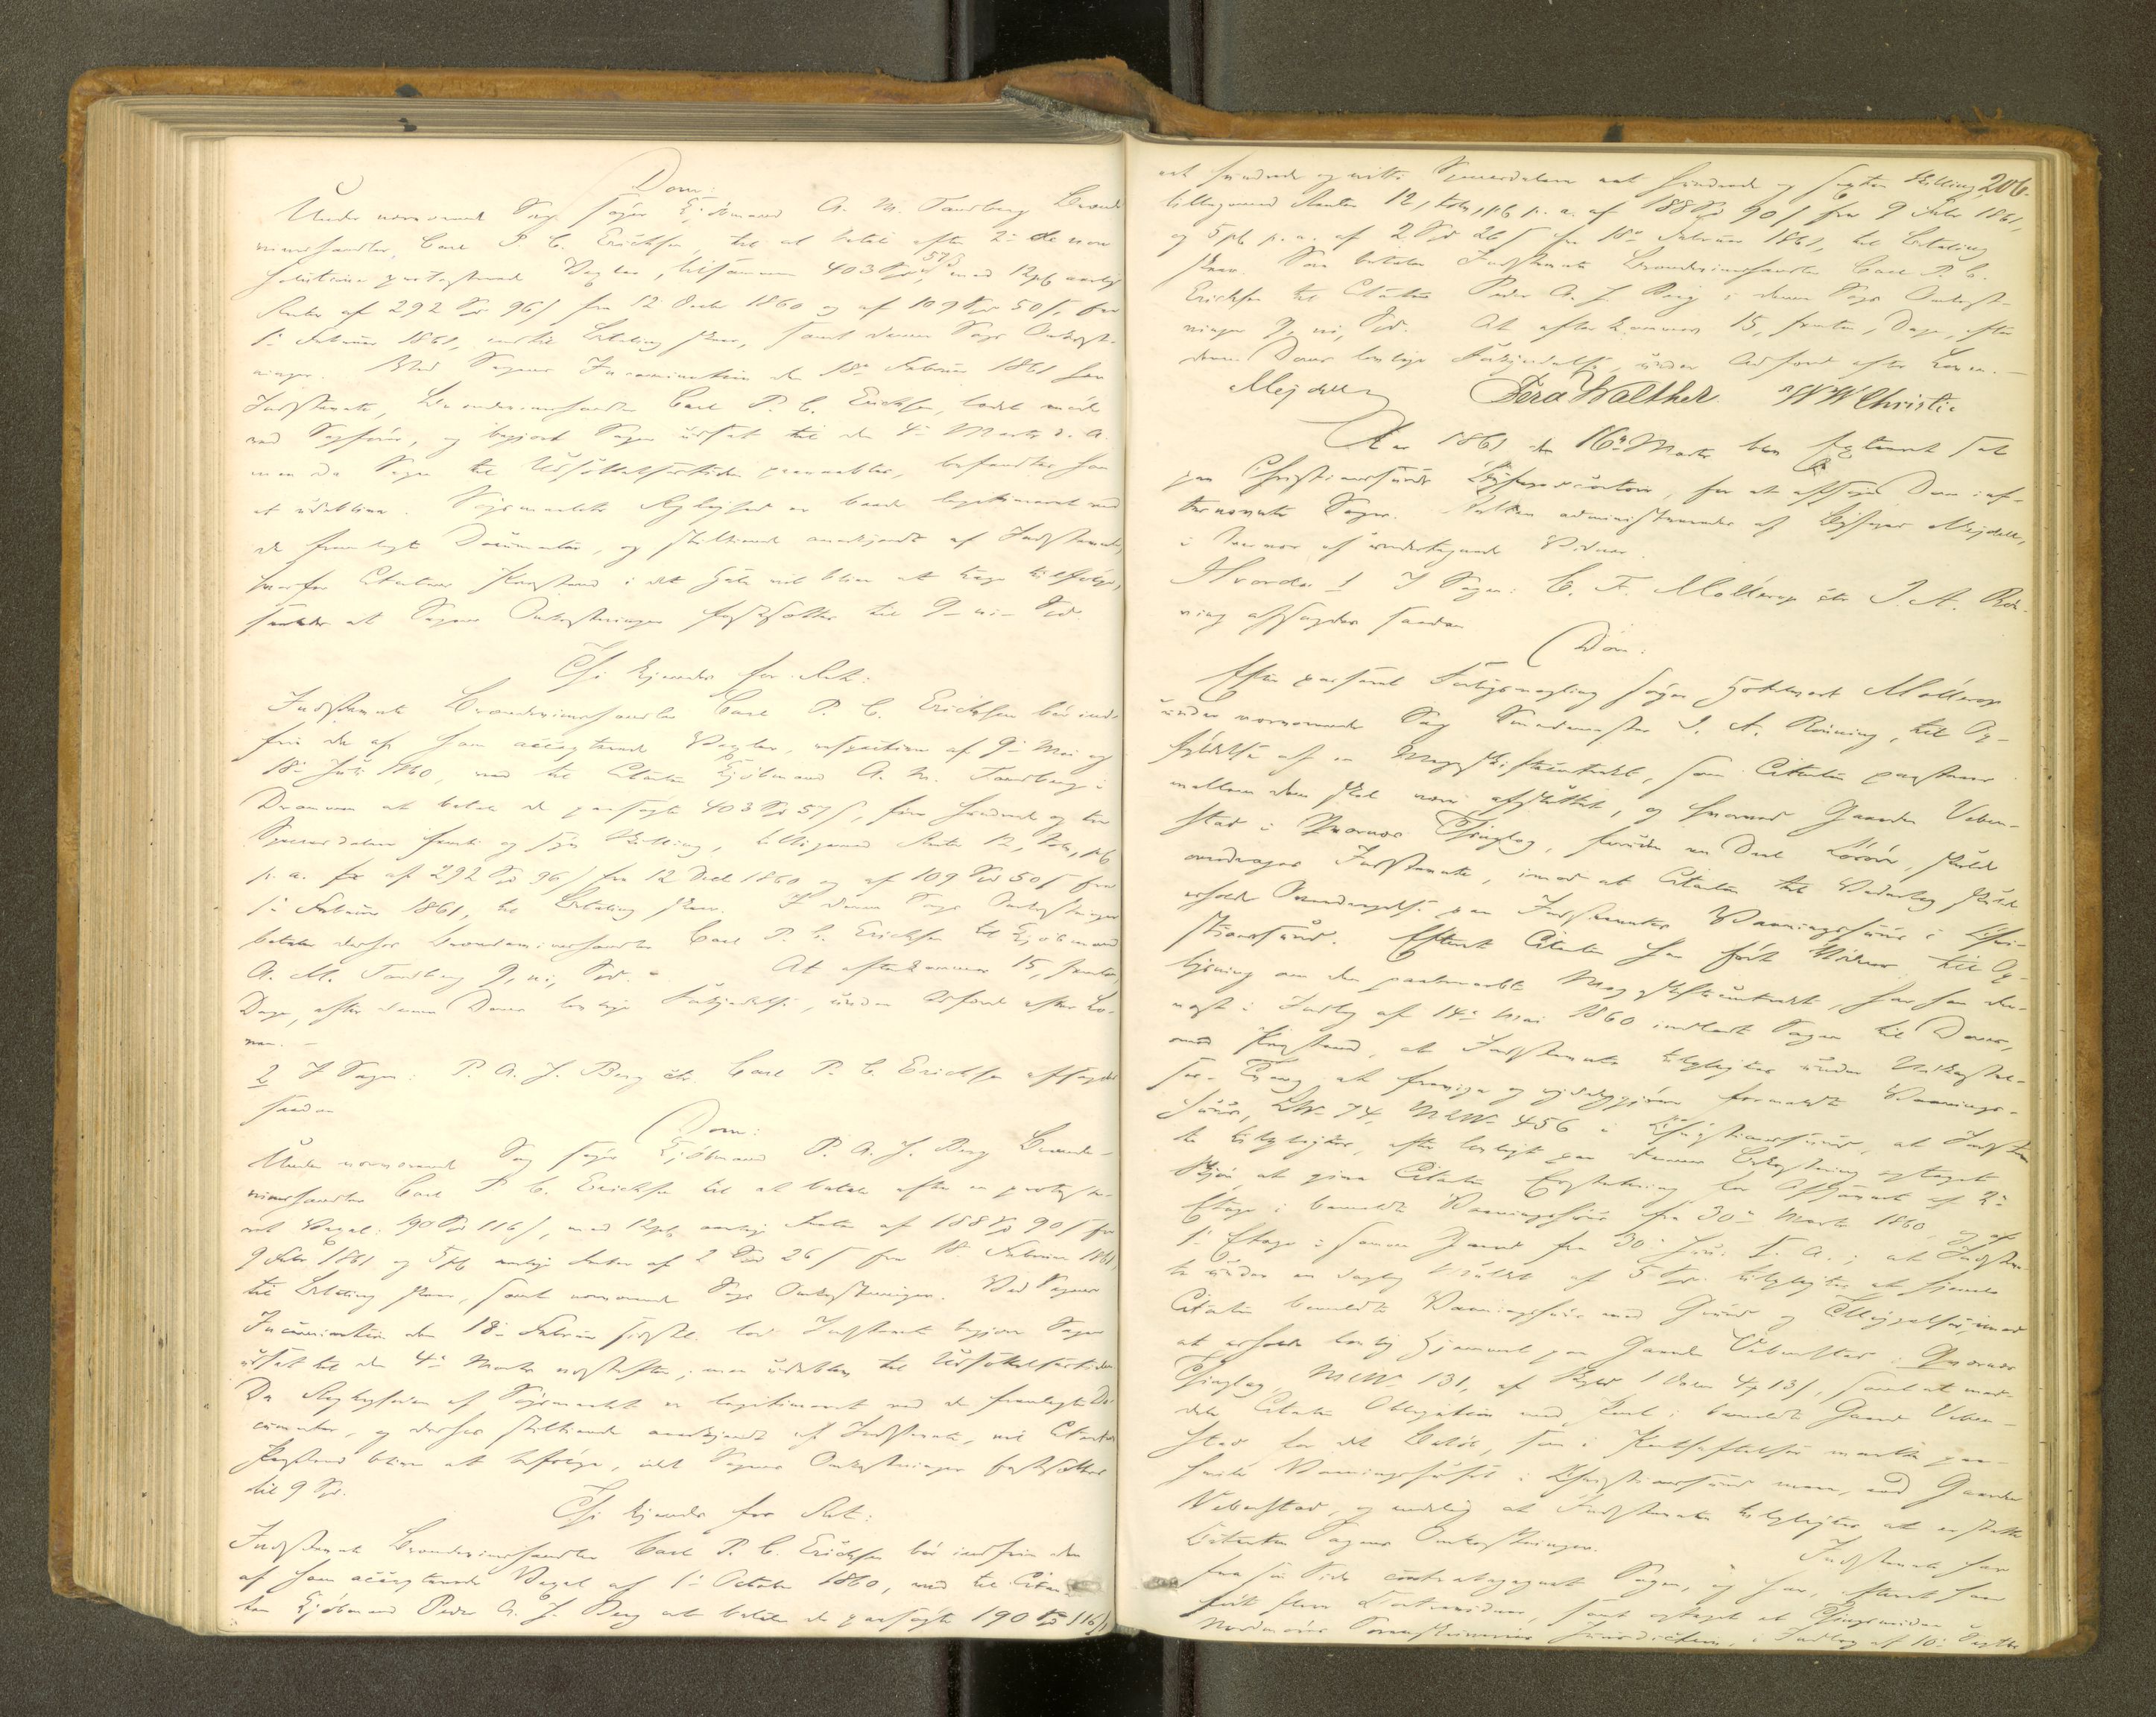 Dom:
Under nærværende Sag søger Kjøbmand A. M. Tandberg Brænde-
viinshandler Carl P. C. Erichsen til at betale efter 2de non
solutione protesterede Vexler, tilsammen 403 Spd 57 s, med 12 pct aarlige
Renter af 292 Spd 96 s fra 12 Decbr 1860 og af 109 Spd 50 s fra
1ste Februar 1861, indtil Betaling skeer, samt denne Sags Omkost-
ninger. Ved Sagens Incamination den 18de Februar 1861 har
Indstevnte, Brændeviinshandler Carl P. C. Erichsen, ladet møde
ved Sagfører, og begjært Sagen udsat til den 4de Marts d. A.
men da Sagen til Udsættelsestiden paaraabtes, befandtes han
at udeblive. Søgsmaalets Rigtighed er baade legitimeret ved
de fremlagte Documenter, og stiltiende anerkjendt af Indstevnte,
hvorfor Citantens Paastand i det Hele vil blive at tage tilfølge,
saaledes at Sagens Omkostninger fastsættes til 9 - ni - Spd.
Thi kjendes for Ret:
Indstevnte Brændeviinshandler Carl P. C. Erichsen bør ind-
frie de af ham accepterede Vexler, respective af 9de Mai og
18de Juli 1860, ved til Citanten Kjøbmand A. M. Tandberg i
Drammen at betale de paasøgte 403 Spd 57 s, fire hundrede og tre
Speciedaler femti og syv Skilling, tilligemed Renter 12, tolv, pct
p. a. af 292 Spd 96 s fra 12 Decbr 1860 og af 109 Spd 50 s fra
1ste Februar 1861, til Betaling skeer. I denne Sags Omkostninger
betaler derhos Brændeviinshandler Carl P. C. Erichsen til Kjøbmand
A. M. Tandberg 9, ni, Spd. - At efterkommes 15, femten,
Dage, efter denne Doms lovlige Forkyndelse, under Adfærd efter Lo-
ven. -
2 I Sagen: P. A. J. Berg ctr. Carl P. C. Erichsen afsagdes
saadan
Dom:
Under nærværende Sag søger Kjøbmand P. A. J. Berg Brænde-
viinshandler Carl P. C. Erichsen til at betale efter en proteste-
ret Vexel: 190 Spd 116 s, med 12 pct aarlige Renter af 188 Spd 90 s fra
9 Febr 1861 og 5 pct aarlige Renter af 2 Spd 26 s fra 18 Februar 1861,
til Betaling skeer, samt nærværende Sags Omkostninger. Ved Sagens
Incamination den 18de Februar sidstl. lod Indstevnte begjære Sagen
udsat til den 4de Marts næstefter; men udeblev til Udsættelsestiden
Da Rigtigheden af Søgsmaalet er legitimeret ved de fremlagte Do-
cumenter, og derhos stiltiende anerkjendt af Indstevnte, vil Citantens
Paastand blive at tilfølge, idet Sagens Omkostninger fastsættes
til 9 Spd.
Thi kjendes for Ret:
Indstevnte Brændeviinshandler Carl P. C. Erichsen bør indfrie den
af ham accepterede Vexel af 1ste October 1860, ved til Citan-
ten Kjøbmand Peder A. J. Berg at betale de paasøgte 190 Spd 116 s,
206.
eet hundrede og nitti Speciedaler eet hundrede og sexten Skilling,
tilligemed Renter 12, tolv, pct p. a. af 188 Spd 90 s fra 9 Febr 1861,
og 5 pct p. a. af 2 Spd 26 s fra 18de Februar 1861, til Betaling
skeer. Saa betaler Indstevnte Brændeviinshandler Carl P. C.
Erichsen til Citanten Peder A. J. Berg i denne Sags Omkost-
ninger 9, ni, Spd. At efterkommes 15, femten, Dage, efter
denne Doms lovlige Forkyndelse, under Adfærd efter Loven. -
Mejdell Ferd Walther W W Christie
Aar 1861 den 16de Marts blev Extraret sat
paa Christianssunds Byfogedcontoir, for at afsige Dom i ef-
ternævnte Sager. Retten administreredes af Byfoged Mejdell,
i Nærvær af undertegnede Vidner.
Hvorda 1 I Sagen: C. F. Møllerop ctr J. A. Røn-
ning afsagdes saadan
Dom:
Efter passeret Forligsmægling søger Møllerop
under nærværende Sag J. A. Rønning, til Op-
fyldelse af en Mageskiftecontrakt, som Citanten paastaaer
mellem dem skal være afsluttet, og hvorved Gaarden Veben-
stad i Qvernæs Thinglag, foruden en Deel Løsøre, skulde
overdrages Indstevnte, imod at Citanten til Vederlag skulde
erholde Overdragelse paa Indstevntes Vaaningshuus i Chri-
stianssund. Efterat Citanten har ført Vidner til Op-
lysning om den paaberaabte Mageskiftecontrakt, har han der-
næst i Indlæg af 14de Mai 1860 indladt Sagen til Doms,
med Paastand, at Indstevnte tilpligtes under Udkastel-
ses Tvang at fravige og ryddeliggjøre formeldte Vaanings-
huus, LNo 74, MNo 456 i Christianssund, at Indstevn-
te tilpligtes, efter lovligt paa hennes Bekostning optaget
Skjøn, at give Citanten Erstatning for Afsavnet af 2den
Etage i bemeldte Vaaningshuus fra 30te Marts 1860, og af
1ste Etage i samme Gaard fra 30te Juni s. A.; at Indstevn-
te under en daglig Mulkt af 5 Spd. tilpligtes at hjemle
Citanten bemeldte Vaaningshuus med Grund og Tilliggelser, imod
at erholde lovlig Hjemmel paa Gaarden Vebenstad i Qvernæs
Thinglag MNo 131, af Skyld 1 Daler 4 13 s, samt at med-
dele Citanten Obligation med Pant i bemeldte Gaard Veben-
stad for det Beløb, som i Panthæftelser maatte paa-
hvile Vaaningshuset i Christianssund mere, end Gaarden
Vebenstad, og endelig at Indstevnte tilpligtes at erstatte
Citanten Sagens Omkostninger. Indstevnte har
fra sin Side contrabeget Sagen, og har, efterat have
ført flere Contravidner, samt optaget et Thingsvidne
Nordmøre Sorenskriveries Jurisdiction, i Indlæg af 10de Septbr